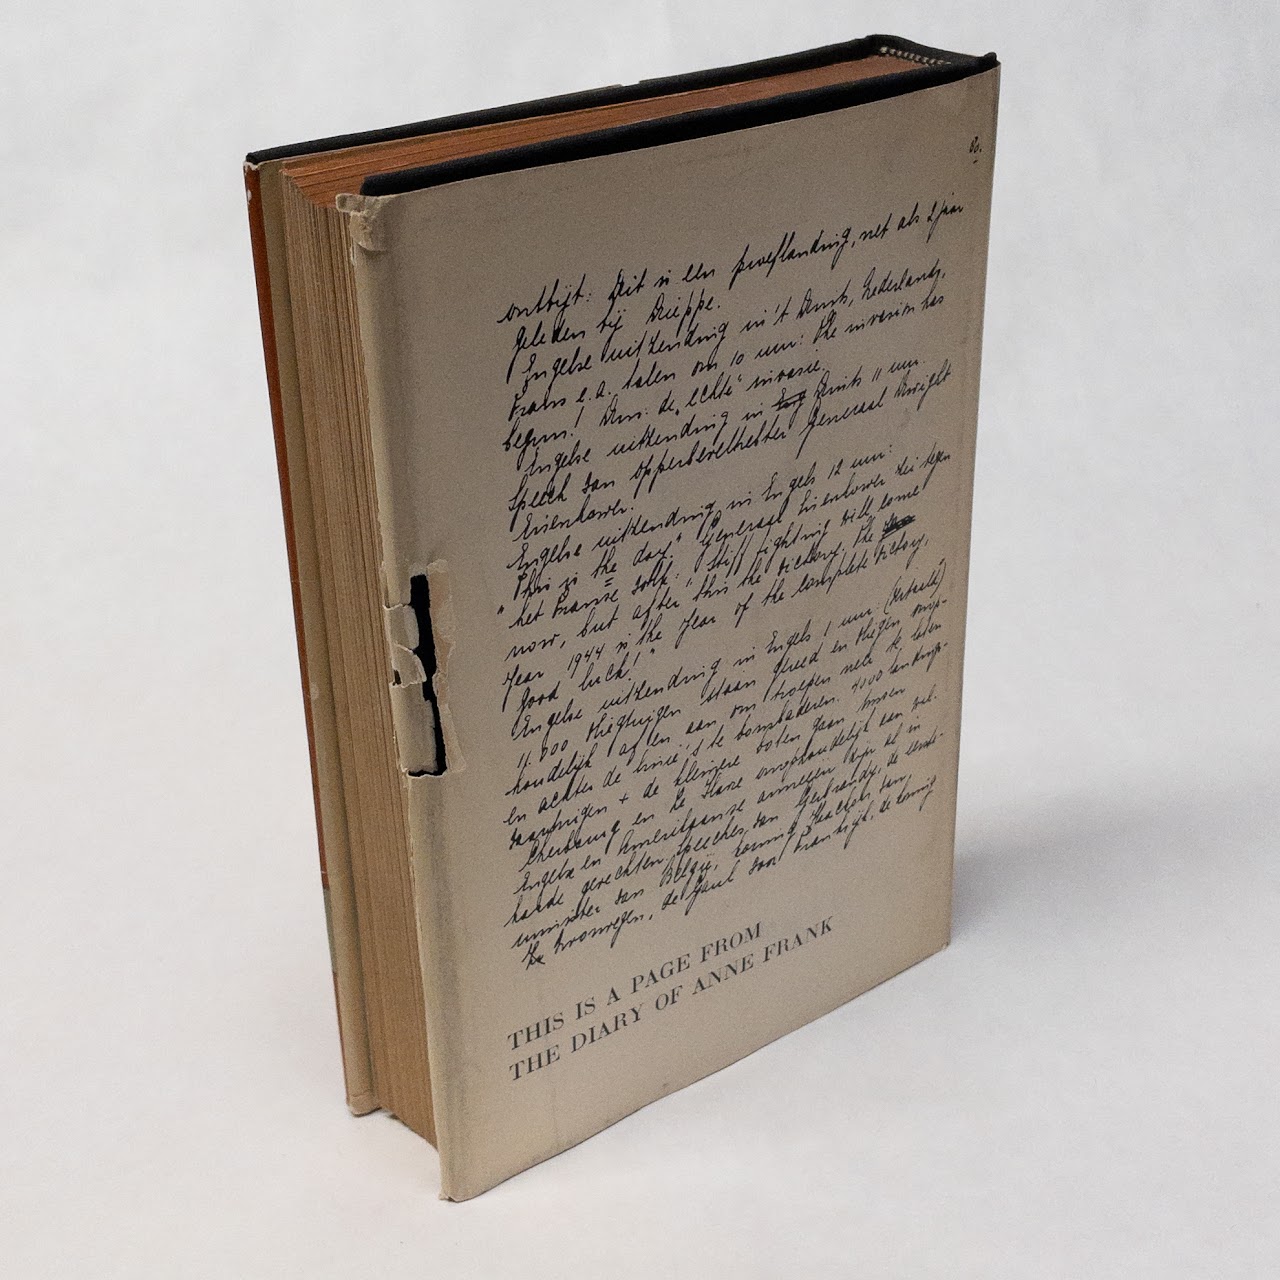 80.
ontbijt: Dit is een proeflanding, net als 2 jaar
geleden bij Dieppe.
Engelse uitzending in 't Duits, Nederlands,
Frans e.a. talen om 10 uur: The invasion has
begun! Dus: de „echte" invasie.
Engelse uitzending in Eng Duits 11 uur.
Speech van opperbevelhebber Generaal Dwight
Eisenhower.
Engelse uitzending in Engels 12 uur:
"This is the day." Generaal Eisenhower zei tegen
het Franse volk: "Stiff fighting will come
now, but after this the victory. The
year 1944 is the year of the complete victory,
good luck!"
Engelse uitzending in Engels 1 uur (vertaald)
11.000 vliegtuigen staan gereed en vliegen onop-
houdelijk af en aan om troepen neer te laten
en achter de linie's te bombarderen. 4000 landings-
vaartuigen + de kleinere boten gaan tussen
Cherbourg en Le Havre onophoudelijk aan wal.
Engelse en Amerikaanse armeeën zijn al in
harde gevechten. Speeches van Gerbrandy, de eerste-
minister van België, koning Haakon van
Noorwegen, de Gaul voor Frankrijk, de koning
THIS IS A PAGE FROM
THE DIARY OF ANNE FRANK